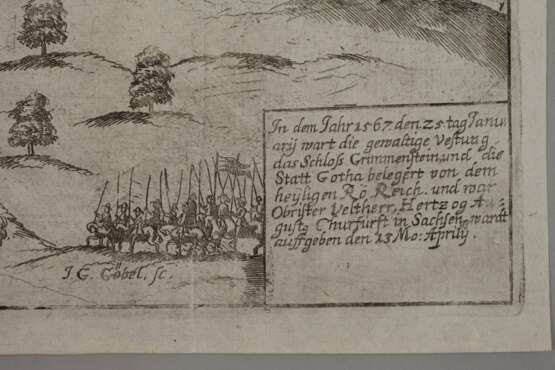 In dem Jahr 1567. den 25. tag Janu
arÿ wart die gewaltige Vestung
das Schloss Grimmenstein, und die
Statt Gotha belegert von dem
heyligen Rö. Reich. und war
Obrister Veltherr, Hertzog Au,
gustg Churfürst in Sachsen, wardt
auffgeben den 13 Mo: Aprilÿ.
J. G. Göbel. sc.